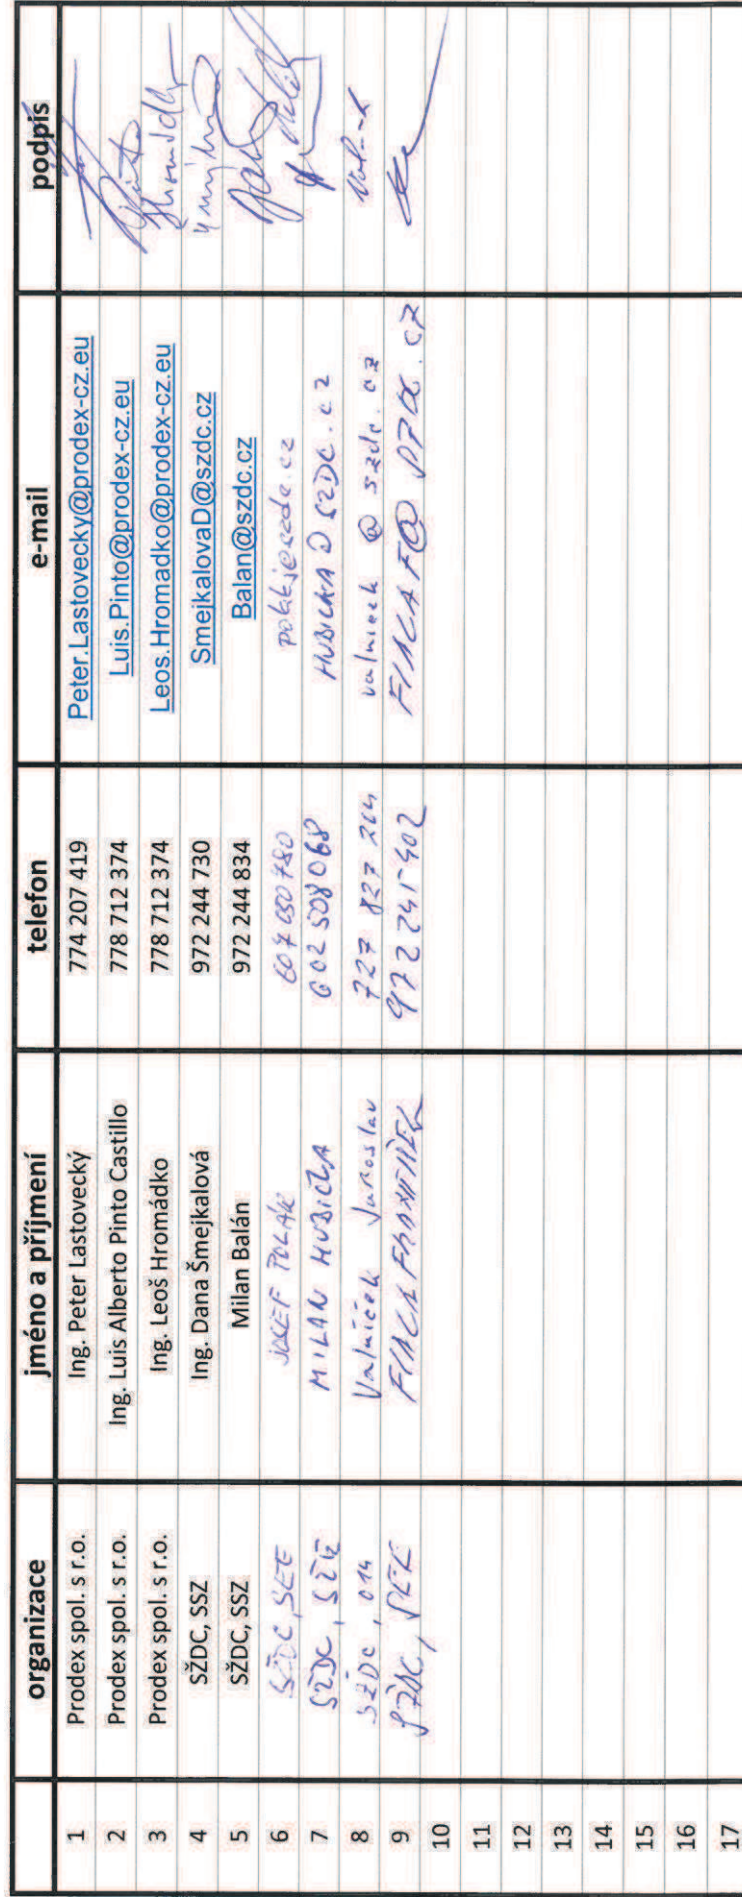 organizace jméno a příjmení telefon e-mail podpis
1 Prodex spol. s r.o. Ing. Peter Lastovecký 774 207 419 Peter.Lastovecky@prodex-cz.eu
2 Prodex spol. s r.o. Ing. Luis Alberto Pinto Castillo 778 712 374 Luis.Pinto@prodex-cz.eu
3 Prodex spol. s r.o. Ing. Leoš Hromádko 778 712 374 Leos.Hromadko@prodex-cz.eu
4 SŽDC, SSZ Ing. Dana Šmejkalová 972 244 730 SmejkalovaD@szdc.cz
5 SŽDC, SSZ Milan Balán 972 244 834 Balan@szdc.cz
6 SŽDC, SEE JOSEF POLÁK 607 050 780
7 SŽDC, SŽE MILAN HUBIČKA 602 508 068 HUBICKA@SZDC.CZ
8 SŽDC, 014 Valníček Jaroslav 727 827 264 valnicek@szdc.cz
9 SŽDC, SEE FIALA FRANTIŠEK 972 241 402 FIALAF@SZDC.CZ
10
11
12
13
14
15
16
17